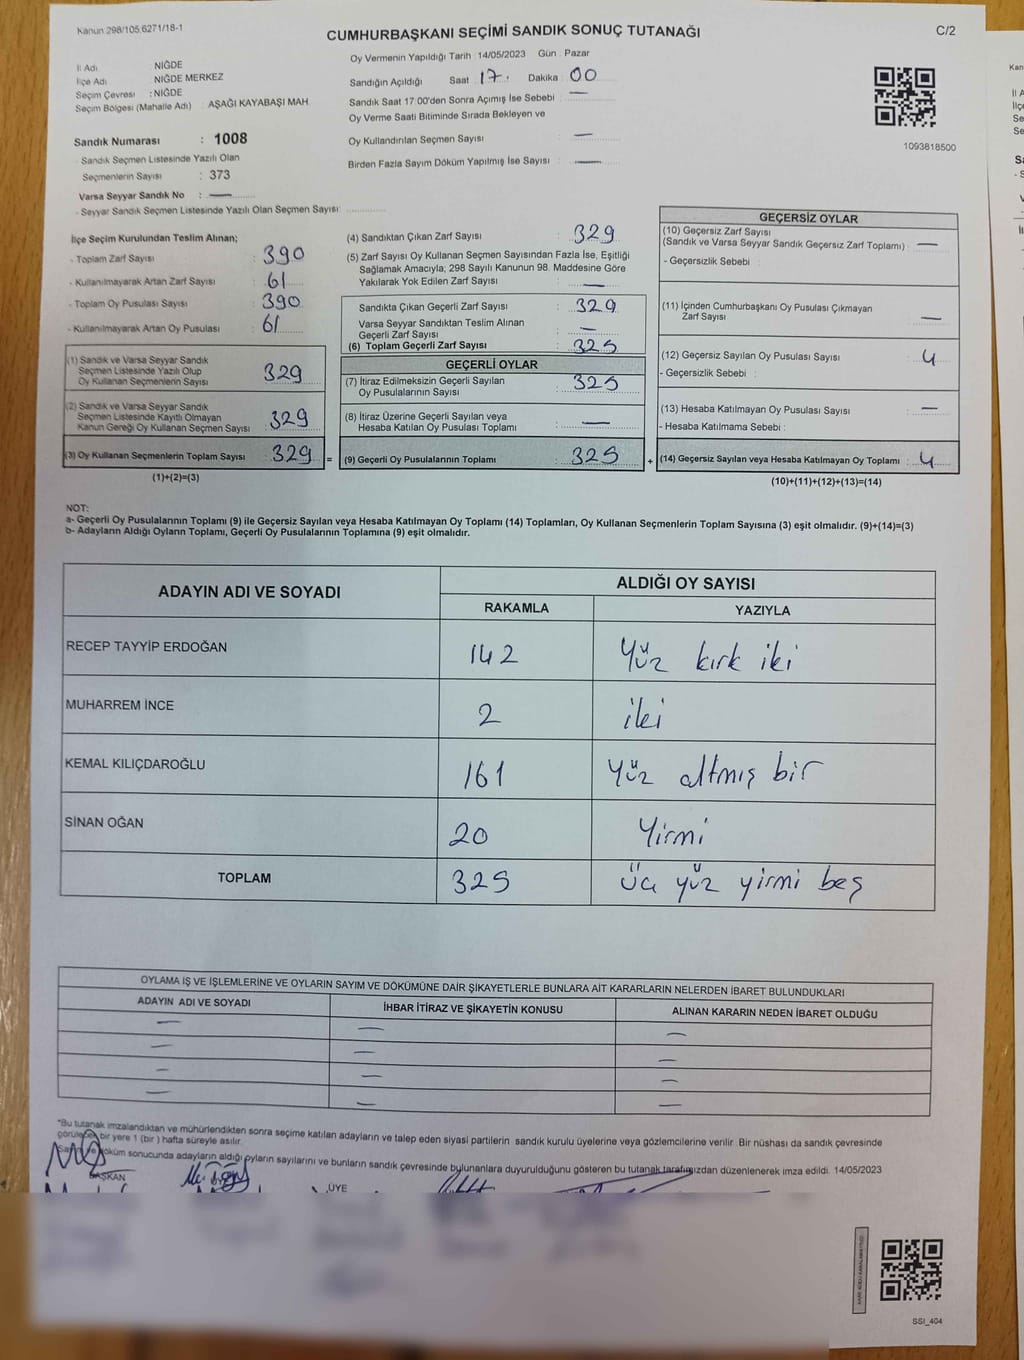 Kanun 298/105;6271/18-1
CUMHURBAŞKANI SEÇİMİ SANDIK SONUÇ TUTANAĞI
C/2
İl Adı : NİĞDE
İlçe Adı : NİĞDE MERKEZ
Seçim Çevresi : NİĞDE
Seçim Bölgesi (Mahalle Adı) : AŞAĞI KAYABAŞI MAH
Sandık Numarası : 1008
- Sandık Seçmen Listesinde Yazılı Olan
Seçmenlerin Sayısı : 373
Varsa Seyyar Sandık No : —
- Seyyar Sandık Seçmen Listesinde Yazılı Olan Seçmen Sayısı:
Oy Vermenin Yapıldığı Tarih : 14/05/2023 Gün : Pazar
Sandığın Açıldığı Saat 17. Dakika : 00
Sandık Saat 17:00'den Sonra Açımış İse Sebebi : —
Oy Verme Saati Bitiminde Sırada Bekleyen ve
Oy Kullandırılan Seçmen Sayısı : —
Birden Fazla Sayım Döküm Yapılmış İse Sayısı : —
1093818500
İlçe Seçim Kurulundan Teslim Alınan;
- Toplam Zarf Sayısı : 390
- Kullanılmayarak Artan Zarf Sayısı : 61
- Toplam Oy Pusulası Sayısı : 390
- Kullanılmayarak Artan Oy Pusulası : 61
(1) Sandık ve Varsa Seyyar Sandık
Seçmen Listesinde Yazılı Olup
Oy Kullanan Seçmenlerin Sayısı : 329
(2) Sandık ve Varsa Seyyar Sandık
Seçmen Listesinde Kayıtlı Olmayan
Kanun Gereği Oy Kullanan Seçmen Sayısı : 329
(3) Oy Kullanan Seçmenlerin Toplam Sayısı : 329 =
(1)+(2)=(3)
(4) Sandıktan Çıkan Zarf Sayısı : 329
(5) Zarf Sayısı Oy Kullanan Seçmen Sayısından Fazla İse, Eşitliği
Sağlamak Amacıyla; 298 Sayılı Kanunun 98. Maddesine Göre
Yakılarak Yok Edilen Zarf Sayısı : —
Sandıkta Çıkan Geçerli Zarf Sayısı : 329
Varsa Seyyar Sandıktan Teslim Alınan
Geçerli Zarf Sayısı : —
(6) Toplam Geçerli Zarf Sayısı : 325
GEÇERLİ OYLAR
(7) İtiraz Edilmeksizin Geçerli Sayılan
Oy Pusulalarının Sayısı : 325
(8) İtiraz Üzerine Geçerli Sayılan veya
Hesaba Katılan Oy Pusulası Toplamı : —
(9) Geçerli Oy Pusulalarının Toplamı : 325 +
GEÇERSİZ OYLAR
(10) Geçersiz Zarf Sayısı
(Sandık ve Varsa Seyyar Sandık Geçersiz Zarf Toplamı) : —
- Geçersizlik Sebebi :
(11) İçinden Cumhurbaşkanı Oy Pusulası Çıkmayan
Zarf Sayısı : —
(12) Geçersiz Sayılan Oy Pusulası Sayısı : 4
- Geçersizlik Sebebi :
(13) Hesaba Katılmayan Oy Pusulası Sayısı : —
- Hesaba Katılmama Sebebi :
(14) Geçersiz Sayılan veya Hesaba Katılmayan Oy Toplamı : 4
(10)+(11)+(12)+(13)=(14)
NOT:
a- Geçerli Oy Pusulalarının Toplamı (9) ile Geçersiz Sayılan veya Hesaba Katılmayan Oy Toplamı (14) Toplamları, Oy Kullanan Seçmenlerin Toplam Sayısına (3) eşit olmalıdır. (9)+(14)=(3)
b- Adayların Aldığı Oyların Toplamı, Geçerli Oy Pusulalarının Toplamına (9) eşit olmalıdır.
ADAYIN ADI VE SOYADI ALDIĞI OY SAYISI
RAKAMLA YAZIYLA
RECEP TAYYİP ERDOĞAN 142 Yüz kırk iki
MUHARREM İNCE 2 iki
KEMAL KILIÇDAROĞLU 161 Yüz altmış bir
SİNAN OĞAN 20 Yirmi
TOPLAM 325 üç yüz yirmi beş
OYLAMA İŞ VE İŞLEMLERİNE VE OYLARIN SAYIM VE DÖKÜMÜNE DAİR ŞİKAYETLERLE BUNLARA AİT KARARLARIN NELERDEN İBARET BULUNDUKLARI
ADAYIN ADI VE SOYADI İHBAR İTİRAZ VE ŞİKAYETİN KONUSU ALINAN KARARIN NEDEN İBARET OLDUĞU
— — —
— — —
— — —
— — —
*Bu tutanak imzalandıktan ve mühürlendikten sonra seçime katılan adayların ve talep eden siyasi partilerin sandık kurulu üyelerine veya gözlemcilerine verilir. Bir nüshası da sandık çevresinde
görülecek bir yere 1 (bir) hafta süreyle asılır.
Sayım ve döküm sonucunda adayların aldığı oyların sayılarını ve bunların sandık çevresinde bulunanlara duyurulduğunu gösteren bu tutanak tarafımızdan düzenlenerek imza edildi. 14/05/2023
BAŞKAN
ÜYE
SSI_404